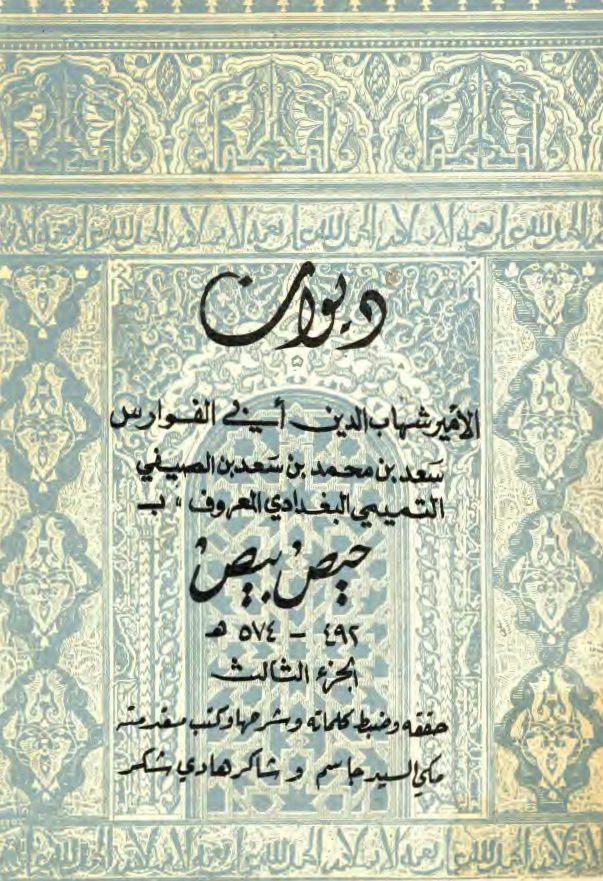 ديوان
الأمير شهاب الدين أبي الفوارس
سعد بن محمد بن سَعد بن الصيفي
التميمي البغدادي المعروف بـ
حيص بيص
٤٩٢ - ٥٧٤ هـ
الجزء الثالث
حققه وضبط كلماته وشرحها وكتب مقدمته
مكي السيد جاسم و شاكر هادي شكر